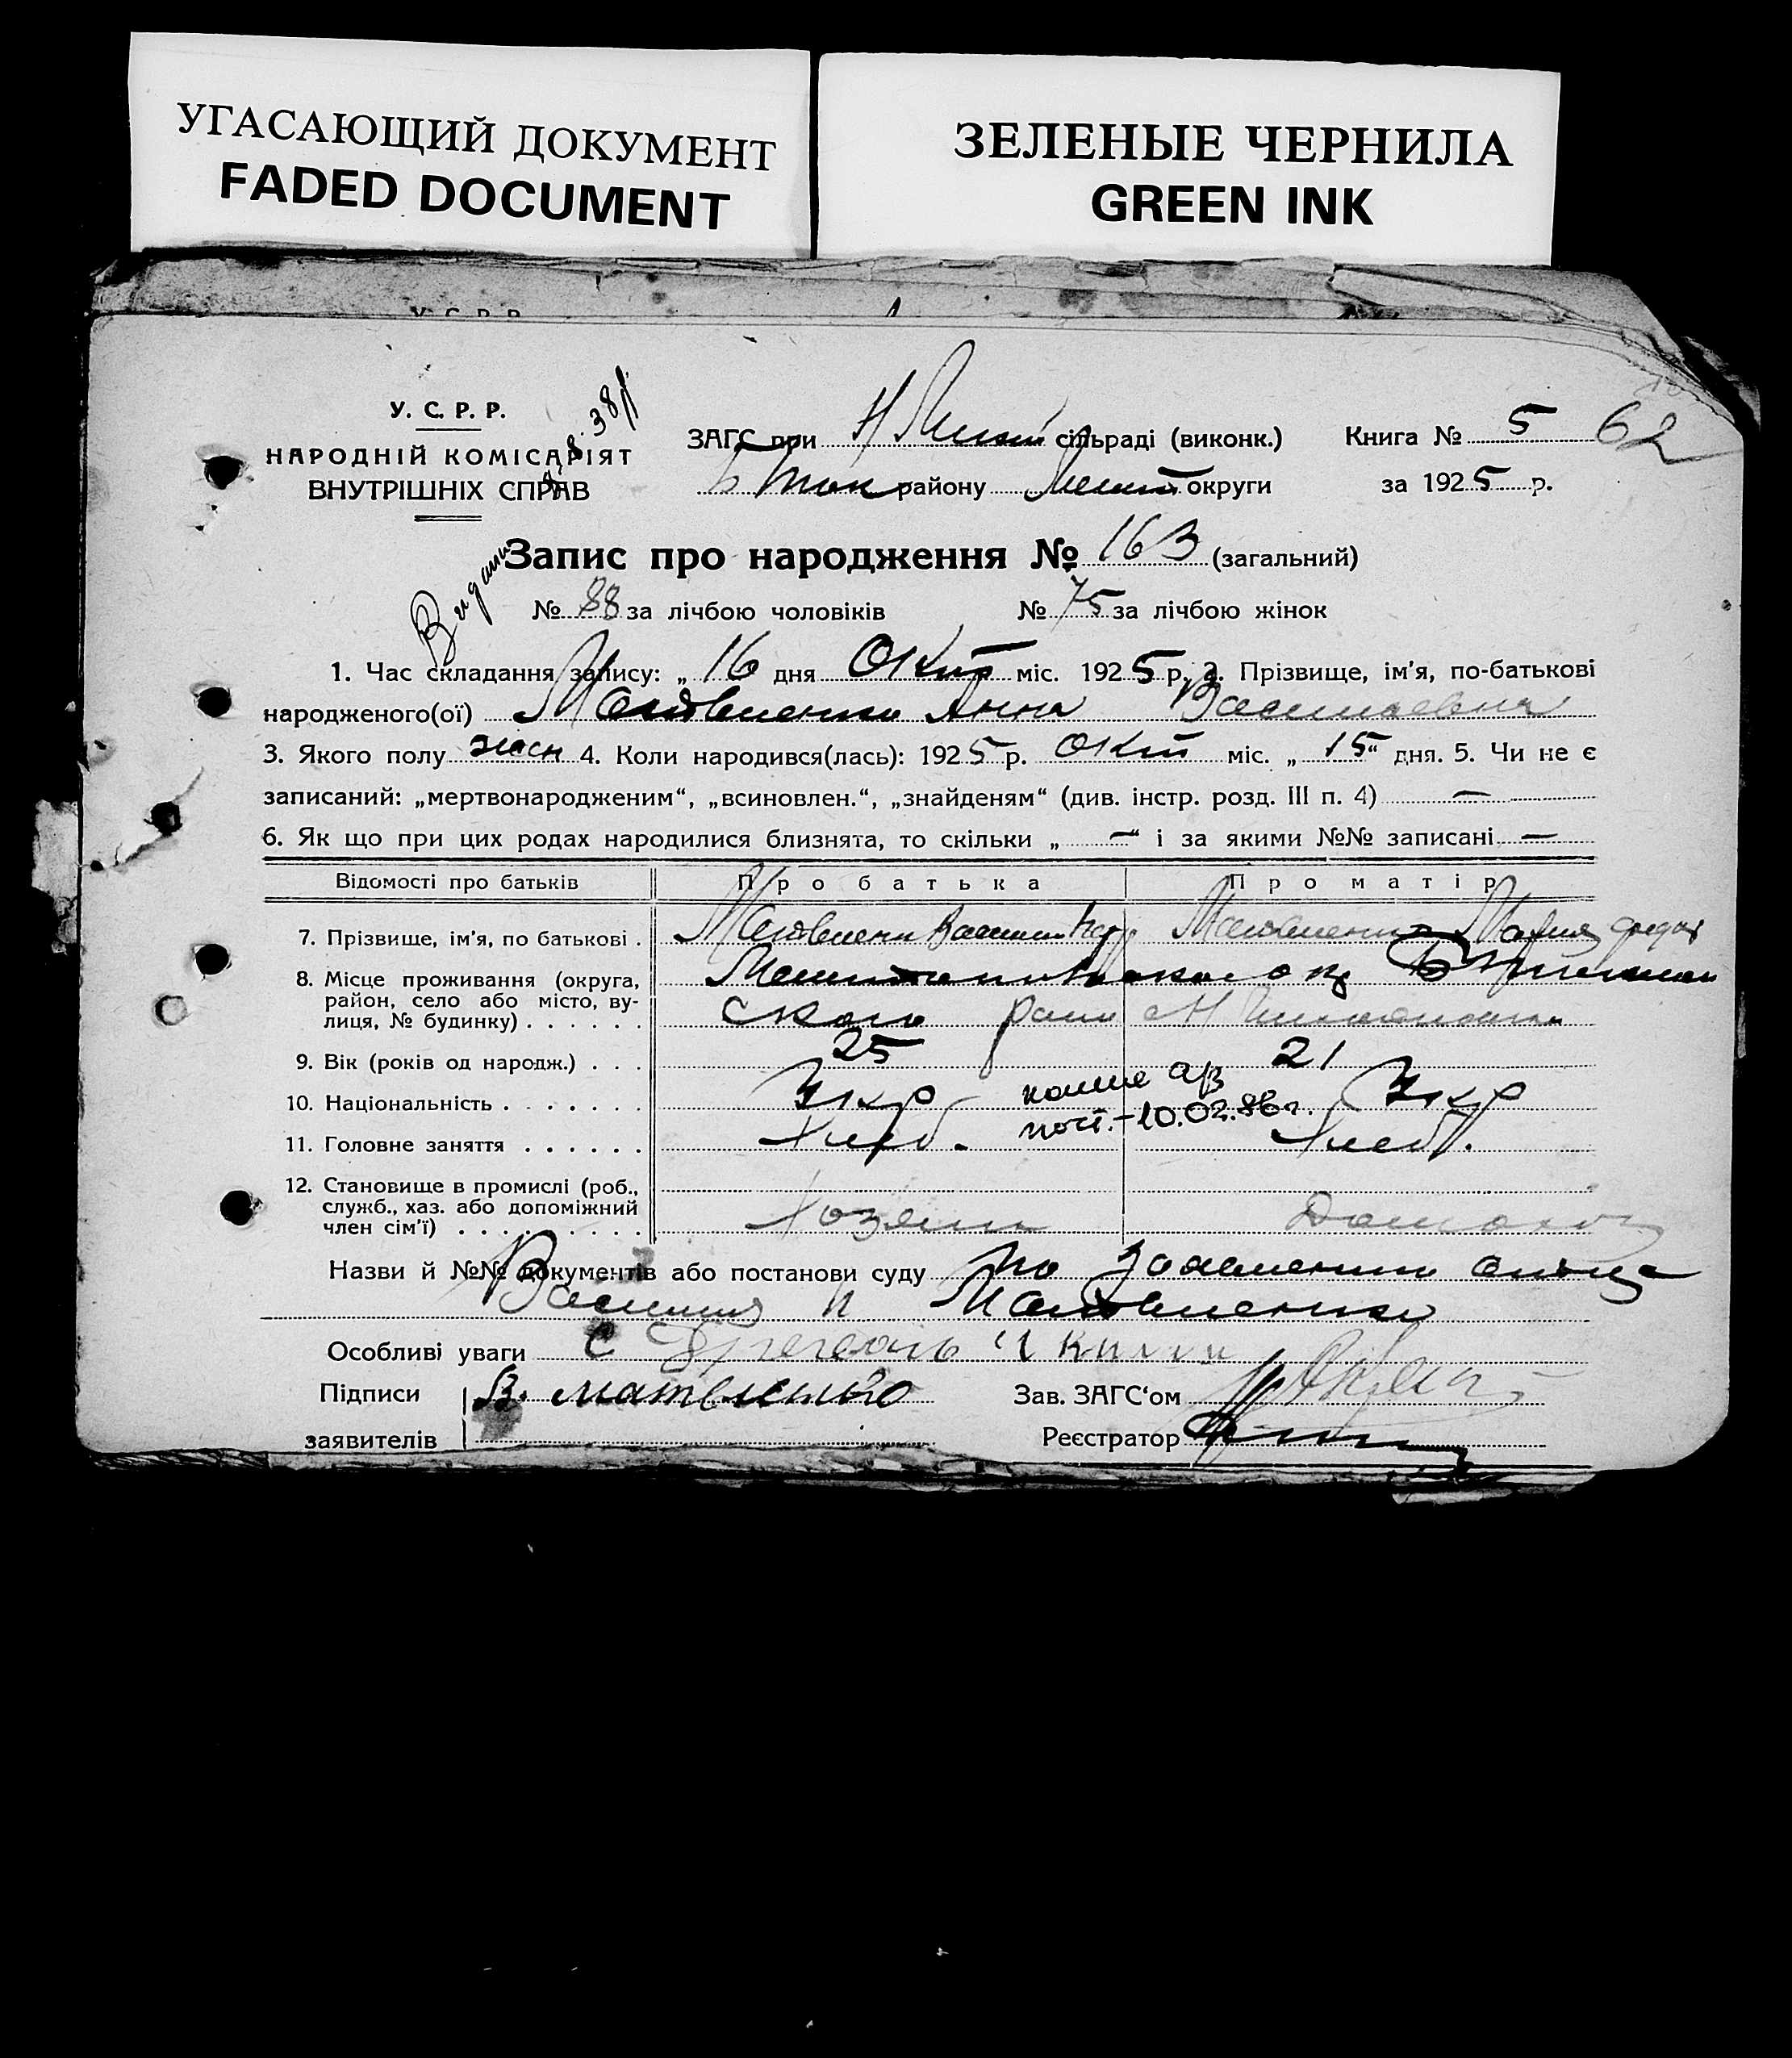 УГАСАЮЩИЙ ДОКУМЕНТ
FADED DOCUMENT
ЗЕЛЕНЫЕ ЧЕРНИЛА
GREEN INK
У. С. Р. Р.
НАРОДНІЙ КОМІСАРІЯТ
ВНУТРІШНІХ СПРАВ
ЗАГС при сільраді (виконк.)
району округи
Книга № 5 62
за 1925 р.
Запис про народження № 163 (загальний)
№ 88 за лічбою чоловіків № 75 за лічбою жінок
1. Час складання запису: „ 16 дня Окт міс. 1925 р. 2. Прізвище, ім'я, по-батькові
народженого(ої) Матвиенко Анна Васильевна
3. Якого полу жен 4. Коли народився(лась): 1925 р. Окт міс. „ 15 “ дня. 5. Чи не є
записаний: „мертвонародженим“, „всиновлен.“, „знайденям“ (див. інстр. розд. III п. 4) —
6. Як що при цих родах народилися близнята, то скільки „ — “ і за якими №№ записані —
Відомості про батьків Про батька Про матір
7. Прізвище, ім'я, по батькові . Матвиенко Василий Матвиенко Мария
8. Місце проживання (округа,
район, село або місто, ву-
лиця, № будинку) . . . . . .
ского
9. Вік (років од народж.) . . . 25 21
10. Національність . . . . . . . Укр Укр
пост. - 10.02.86 г.
11. Головне заняття . . . . . . Хлеб. Хлеб.
12. Становище в промислі (роб.,
служб., хаз. або допоміжний
член сім'ї) . . . . . . . . . Хозяин Домохоз
Назви й №№ документів або постанови суду По заявлению отца
Василия Матвиенко
Особливі уваги С
Підписи В. матвиенко Зав. ЗАГС‘ом
заявителів Реєстратор